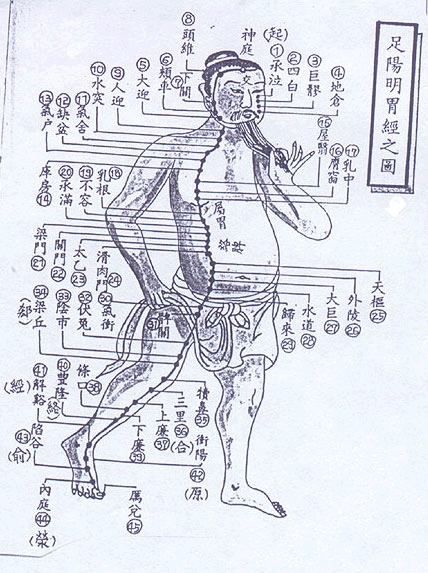 足陽明胃經之圖
神庭
(起)
①承泣
②四白
③巨髎
④地倉
⑤大迎
⑥頰車
⑦下關
⑧頭維
⑨人迎
⑩水突
⑪氣舍
⑫缺盆
⑬氣户
庫房⑭
⑮屋翳
⑯膺窗
⑰乳中
⑱乳根
⑲不容
⑳承滿
梁門㉑
關門㉒
太乙㉓
滑肉門㉔
天樞㉕
外陵㉖
大巨㉗
水道㉘
歸來㉙
㉚氣衝
㉛髀關
㉜伏兎
㉝陰市
㉞梁丘
(郄)
犢鼻㉟
三里㊱
(合)
上廉㊲
條口㊳
下廉㊴
㊵豐隆
(絡)
㊶解谿
(經)
衝陽㊷
(原)
陷谷㊸
(俞)
內庭㊹
(滎)
厲兌㊺
屬胃